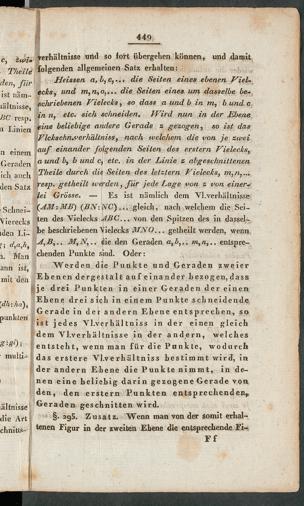 449
verhältnisse und so fort übergehen können, und damit
folgenden allgemeinen Satz erhalten:
Heissen a, b, c,... die Seiten eines ebenen Viel-
ecks, und m, n, o,... die Seiten eines um dasselbe be-
schriebenen Vielecks, so dass a und b in m, b und c
in n, etc. sich schneiden. Wird nun in der Ebene
eine beliebige andere Gerade z gezogen, so ist das
Vlcksschn.verhältniss, nach welchem die von je zwei
auf einander folgenden Seiten des erstern Vielecks,
a und b, b und c, etc. in der Linie z abgeschnittenen
Theile durch die Seiten des letztern Vielecks, m, n,...
resp. getheilt werden, für jede Lage von z von einer-
lei Grösse. — Es ist nämlich dem Vl.verhältnisse
(AM:MB) (BN:NC)... gleich, nach welchem die Sei-
ten des Vielecks ABC... von den Spitzen des in dassel-
be beschriebenen Vielecks MNO... getheilt werden, wenn
A, B,.. M, N,.. die den Geraden a, b,.. m, n,.. entspre-
chenden Punkte sind. Oder:
Werden die Punkte und Geraden zweier
Ebenen dergestalt auf einander bezogen, dass
je drei Punkten in einer Geraden der einen
Ebene drei sich in einem Punkte schneidende
Gerade in der andern Ebene entsprechen, so
ist jedes Vl.verhältniss in der einen gleich
dem Vl.verhältnisse in der andern, welches
entsteht, wenn man für die Punkte, wodurch
das erstere Vl.verhältniss bestimmt wird, in
der andern Ebene die Punkte nimmt, in de-
nen eine beliebig darin gezogene Gerade von
den, den erstern Punkten entsprechenden,
Geraden geschnitten wird.
§. 295. Zusatz. Wenn man von der somit erhal-
tenen Figur in der zweiten Ebene die entsprechende Fi-
Ff